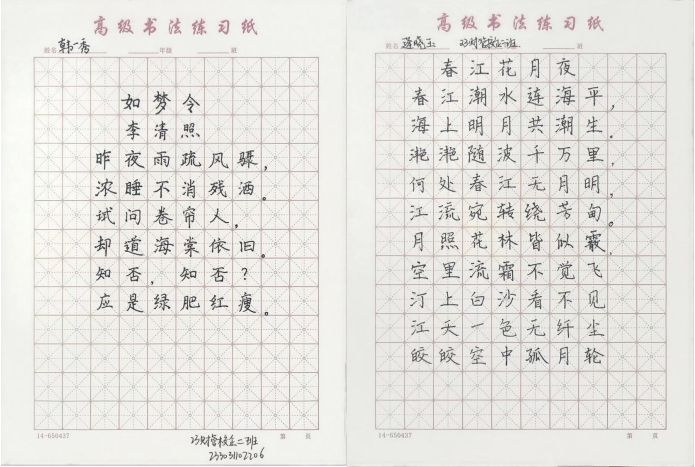 高级书法练习纸
姓名 韩一秀 年级 班
如梦令
李清照
昨夜雨疏风骤，
浓睡不消残酒。
试问卷帘人，
却道海棠依旧。
知否，知否？
应是绿肥红瘦。
14-650437 第 页
23财管校企二班
233031102206
高级书法练习纸
姓名 23财管校企二班 班
春江花月夜
春江潮水连海平，
海上明月共潮生。
滟滟随波千万里，
何处春江无月明，
江流宛转绕芳甸。
月照花林皆似霰，
空里流霜不觉飞
汀上白沙看不见
江天一色无纤尘
皎皎空中孤月轮
14-650437 第 页